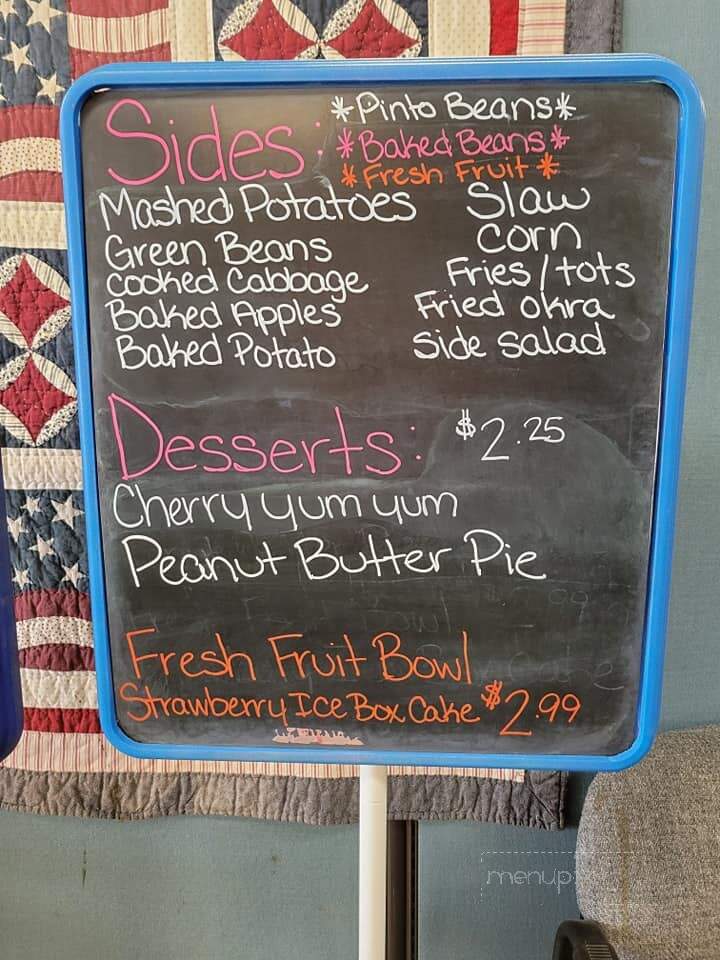 Sides: *Pinto Beans*
*Baked Beans*
*Fresh Fruit*
Mashed Potatoes Slaw
Green Beans corn
Cooked Cabbage Fries/tots
Baked Apples Fried okra
Baked Potato side salad
Desserts: $2.25
Cherry yum yum
Peanut Butter Pie
Fresh Fruit Bowl
Strawberry Ice Box Cake $2.99
menup